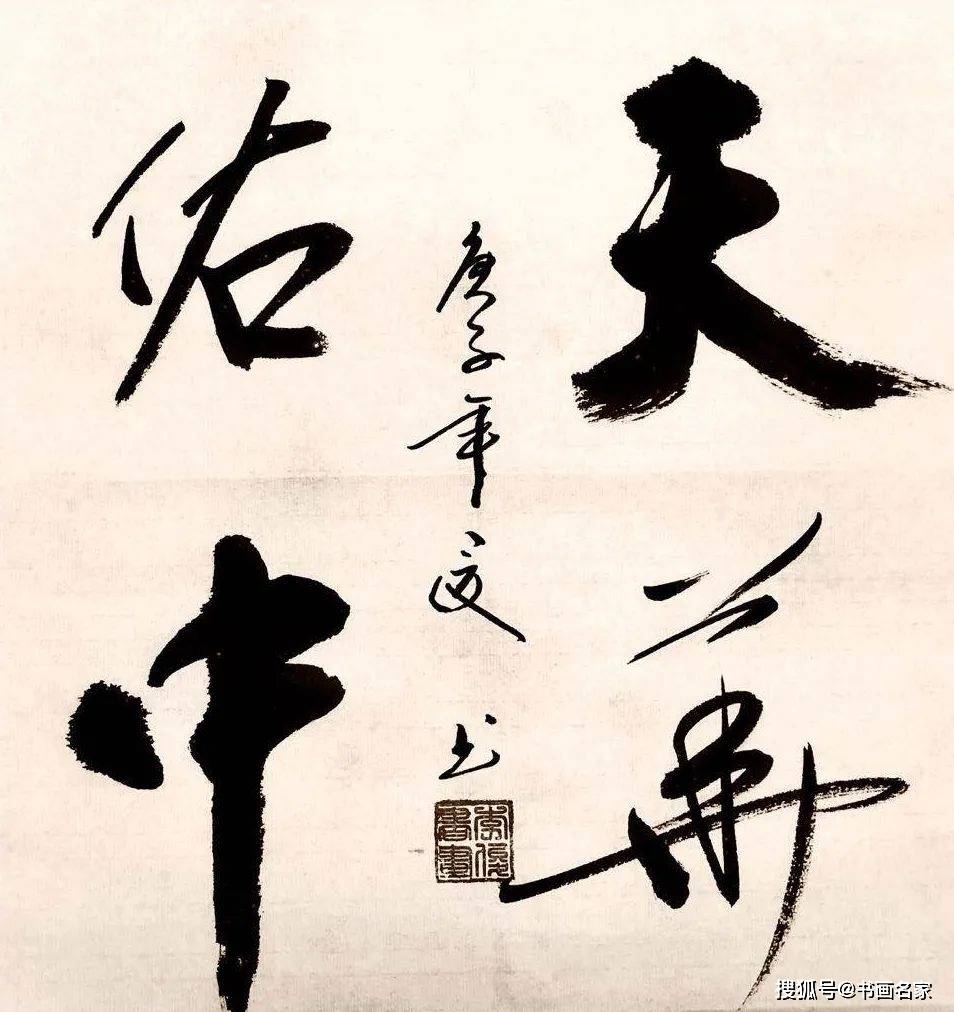 天佑
中華
庚子年
书
書畫
搜狐号@书画名家